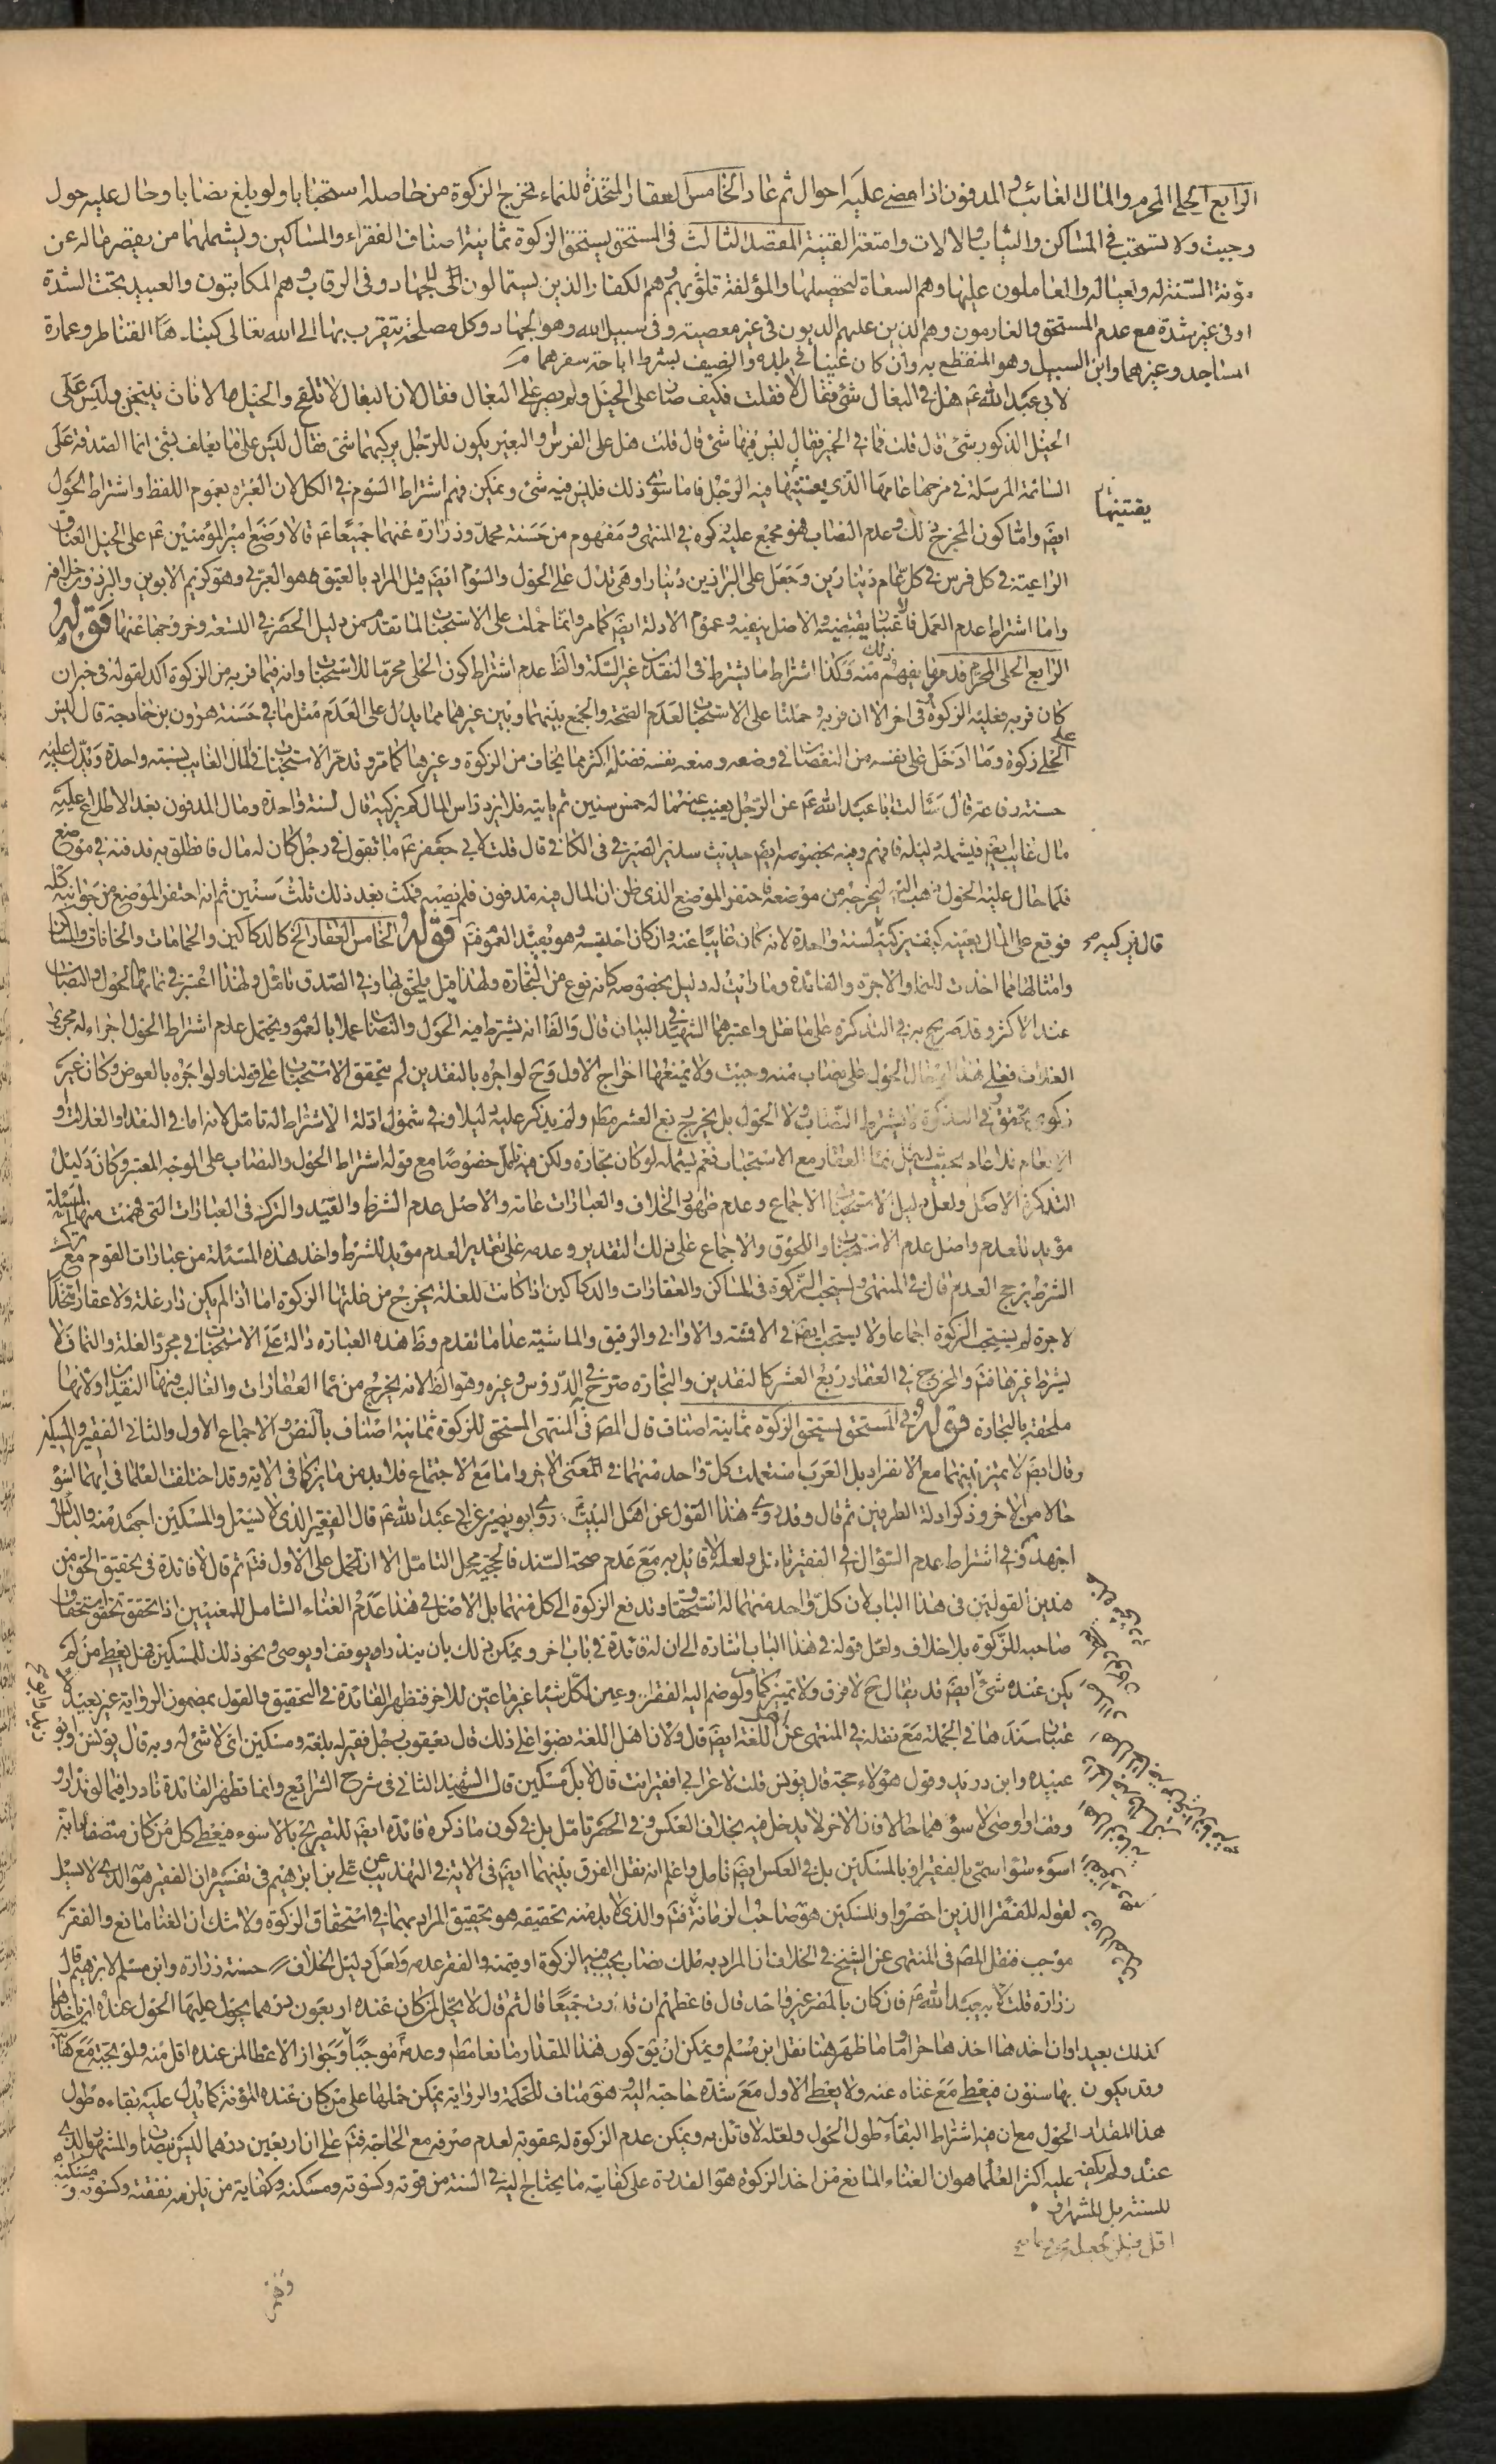 الرابع الحلى المحرم والمال الغائب والمدفون اذا مضى عليه احوال ثم عاد الخامس العقار المتخذة للنماء يخرج الزكوة من حاصله استحبابا ولو بلغ نصابا وحال عليه حول
وجبت ولا تستحب في المساكن والثياب والالات وامتعة القنية المقصد الثالث في المستحق يستحق الزكوة ثمانية اصناف الفقراء والمساكين ويشملهما من يقصر ماله عن
مؤنة السنة له ولعياله والعاملون عليها وهم السعاة لتحصيلها والمؤلفة قلوبهم وهم الكفار الذين يستمالون الى الجهاد وفي الرقاب وهم المكاتبون والعبيد تحت الشدة
او في غير شدة مع عدم المستحق والغارمون وهم الذين عليهم الديون في غير معصية وفي سبيل الله وهو الجهاد وكل مصلحة يتقرب بها الى الله تعالى كبناء القناطر وعمارة
المساجد وغيرهما وابن السبيل وهو المنقطع به وان كان غنيا في بلده والضيف بشرط اباحة سفرهما
لابي عبد الله عم هل في البغال شئ فقال لا فقلت فكيف صار على الخيل ولم يصر على البغال فقال لان البغال لا تلقح والخيل الاناث ينتجن وليس على
الخيل الذكور شئ قال قلت فما في الحمير فقال ليس فيها شئ قال قلت هل على الفرس والبعير يكون للرجل يركبهما شئ فقال ليس على ما يعلف شئ انما الصدقة على
السائمة المرسلة في مرجها عامها الذي يقتنيها فيه الرجل فاما سوى ذلك فليس فيه شئ ويمكن فهم اشتراط السوم في الكل لان العبرة بعموم اللفظ واشتراط الحول
يقتنيها
ايضا واما كون المخرج ذلك وعدم النصاب فهو مجمع عليه ذكره في المنتهى ومفهوم من حسنة محمد وزرارة عنهما جميعا عم قالا وضع امير المؤمنين عم على الخيل العتاق
الراعية في كل فرس في كل عام دينارين وجعل على البراذين دينارا وهي تدل على الحول والسوم ايضا قيل المراد بالعتيق هو العربي وهو كريم الابوين والبرذون خلافه
واما اشتراط عدم العمل فالاعتبار يقتضيه والاصل ينفيه وعموم الادلة ايضا كما مر وانما حملت على الاستحباب لما تقدم من دليل الحصر في التسعة وخروجها عنها قوله
الرابع الحلى المحرم قد مر ما يفهم منه ذلك وكذا اشتراط ما يشترط في النقدين غير السكة والظ عدم اشتراط كون الحلى محرما للاستحباب وانه فيما فر به من الزكوة آكد لقوله في خبر ان
كان فر به فعليه الزكوة وفي اخر الا ان فر به وحملنا على الاستحباب لعدم الصحة والجمع بينهما وبين غيرهما مما يدل على العدم مثل ما في حسنة هرون بن خارجة قال ليس
على الحلى زكوة وما ادخل على نفسه من النقصان في وضعه ومنعه نفسه فضله اكثر مما يخاف من الزكوة وغيرها كما مر وقد مر الاستحباب في المال الغايب لسنة واحدة ويدل عليه
حسنة رفاعة قال سألت ابا عبد الله عم عن الرجل يغيب عنه ماله خمس سنين ثم ياتيه فلا يرد راس المال كم يزكيه قال سنة واحدة ومال المدفون بعد الاطلاع عليه
مال غايب ايضا فيشمله دليله فافهم وفيه بخصوصه ايضا حديث سدير الصيرفي في الكافي قال قلت لابي جعفر عم ما تقول في رجل كان له مال فانطلق به فدفنه في موضع
فلما حال عليه الحول ذهب اليه ليخرجه من موضعه فاحتفر الموضع الذي ظن ان المال فيه مدفون فلم يصبه فمكث بعد ذلك ثلث سنين ثم انه احتفر الموضع من جوانبه كله
فوقع على المال بعينه كيف يزكيه لسنة واحدة لانه كان غايبا عنه وان كان احتبسه وهو يفيد العموم فتم قوله والخامس العقار الخ كالدكاكين والحمامات والخانات والمساكن
قال يزكيه
وامثالها مما اخذت للنماء والاجرة والفائدة وما رايت له دليل بخصوصه كانه نوع من التجارة ولهذا قيل ملحق بها وفي الصدق تامل ولهذا اعتبر في نمائها الحول والنصاب
عند الاكثر وقد صرح به في التذكرة على ما نقل واعتبرهما الشهيد في البيان قال والفا انه يشترط فيه الحول والنصاب عملا بالعموم ويحتمل عدم اشتراط الحول اجراء له مجرى
الغلات فعلى هذا لو حال الحول على نصاب منه وجبت ولا يمنعها اخراج الاول وح لو اجره بالنقدين لم يتحقق الاستحباب على قولنا ولو اجره بالعوض وكان غير
زكوي تحقق وفي التذكرة لا يشترط النصاب ولا الحول بل يخرج ربع العشر مطلقا ولم يذكر عليه دليلا وفي شمول ادلة الاشتراط له تامل لانه اما في النقد او الغلات او
الانعام
التذكرة الاصل ولعل دليل الاستحباب الاجماع وعدم ظهور الخلاف والعبارات عامة والاصل عدم الشرط والقيد والترك في العبارات التي فهمت منها المسئلة
مؤيد للعدم واصل عدم الاستحباب واللحوق والاجماع على ذلك التقدير وعدمه على تقدير العدم مؤيد للشرط واخذ هذه المسئلة من عبارات القوم مع ترك
الشرط يرجح العدم قال في المنتهى ويستحب الزكوة في المساكن والعقارات والدكاكين اذا كانت للغلة يخرج من غلتها الزكوة اما اذا لم يكن دار غلة ولا عقار متخذا
لاجرة لم يستحب الزكوة اجماعا ولا يستحب ايضا في الاقمشة والاواني والرقيق والماشية عدا ما تقدم وظ هذه العبارة دالة على الاستحباب في مجرد الغلة والنماء ولا
يشترط غيرها فتم والمخرج في العقار ربع العشر كالنقدين والتجارة صرح به في الدروس وغيره وهو الظ لانه يخرج من نماء العقارات والغالب فيها النقدان ولانها
ملحقة بالتجارة قوله في المستحق يستحق الزكوة ثمانية اصناف قال المص في المنتهى المستحق للزكوة ثمانية اصناف بالنص والاجماع الاول والثاني الفقير والمسكين
وقال ايضا لا يتميز بينهما مع الانفراد بل العرب استعملت كل واحد منهما في المعنى الاخر واما مع الاجتماع فلا بد من مايز كما في الاية وقد اختلف العلما في ايهما اسوء
حالا من الاخر وذكر ادلة الطرفين ثم قال وقد روي هذا القول عن اهل البيت روى ابو بصير عن ابي عبد الله عم قال الفقير الذي لا يسئل والمسكين اجهد منه والبائس
اجهدهم وفي اشتراط عدم السؤال في الفقير تامل ولعله لا قائل به مع عدم صحة السند فالحجية محل التامل الا ان يحمل على الاول فتم ثم قال لا فائدة في تحقيق الحق من
هذين القولين في هذا الباب لان كل واحد منهما له استحقاق وتدفع الزكوة الى كل منهما بل الاصل في هذا عدم الغناء الشامل للمعنيين اذا تحقق تحقق استحقاق
صاحبه للزكوة بلا خلاف ولعل قوله في هذا الباب اشارة الى ان له فائدة في باب اخر ويمكن ذلك بان ينذر او يوقف او يوصى ونحو ذلك للمسكين فهل يعطى من لم
يكن عنده شئ ايضا قد يقال ح لا فرق ولا تمييز كما مر ولو ضم اليه الفقراء وعين لكل شيئا غير ما عين للاخر فتظهر الفائدة في التحقيق والقول بمضمون الرواية غير بعيد
باعتبار سندها في الجملة مع نقله في المنتهى عن اهل اللغة ايضا قال ولان اهل اللغة نصوا على ذلك قال يعقوب رجل فقير له بلغة ومسكين اي لا شئ له وبه قال يونس وابو
عبيدة وابن دريد وقول هؤلاء حجة قال يونس قلت لاعرابي افقير انت قال لا بل مسكين قال الشهيد الثاني في شرح الشرايع وانما تظهر الفائدة نادرا فيما لو نذر او
وقف او اوصى لاسوءهما حالا فان الاخر لا يدخل فيه بخلاف العكس وفي الحصر تامل بل في كون ما ذكره فائدة ايضا للتصريح بالاسوء فيعطى كل من كان متصفا بانه
اسوء سواء سمى بالفقير او بالمسكين بل في العكس ايضا تامل واعلم انه نقل الفرق بينهما ايضا في الاية في التهذيب عن علي بن ابرهيم في تفسيره ان الفقير هو الذي لا يسئل
لقوله للفقراء الذين احصروا والمسكين هو صاحب الزمانة فتم والذي لا بد منه تحقيقه هو تحقيق المراد بهما في استحقاق الزكوة ولا شك ان الغنا مانع والفقر
موجب فنقل المص في المنتهى عن الشيخ في الخلاف ان المراد به ملك نصاب يجب فيه الزكوة او قيمته والفقر عدمه ولعل دليل الخلاف حسنة زرارة وابن مسلم لابرهيم قال
زرارة قلت لابي عبد الله عم فان كان بالمصر غير واحد قال فاعطهم ان قدرت جميعا قال ثم قال لا يحل لمن كان عنده اربعون درهما يحول عليها الحول عنده ان ياخذها
كذلك بعيد او ان اخذها اخذها حراما وما ظهر هنا نقل ابن مسلم ويمكن ان يق كون هذا المقدار مانعا مطلقا وعدمه موجبا وجواز الاعطا لمن عنده اقل منه ولو بحبة مع
وقد يكون بها سنون فيعطى مع غناه عنه ولا يعطى الاول مع شدة حاجته اليه وهو مناف للحكمة والرواية يمكن حملها على من كان عنده المؤنة كما يدل عليه بقاءه طول
هذا المقدار الحول مع ان فيه اشتراط البقاء طول الحول ولعله لا قائل به ويمكن عدم الزكوة له عقوبة لعدم صرفه مع الحاجة فتم على ان اربعين درهما ليس بنصاب والمشهور الذي
عنده ولم يكفه عليه اكثر العلما هو ان الغناء المانع من اخذ الزكوة هو القدرة على كفاية ما يحتاج اليه في السنة من قوته وكسوته ومسكنه وكفاية من يلزمه نفقته وكسوته ومسكنه
للسنة بل المشهور